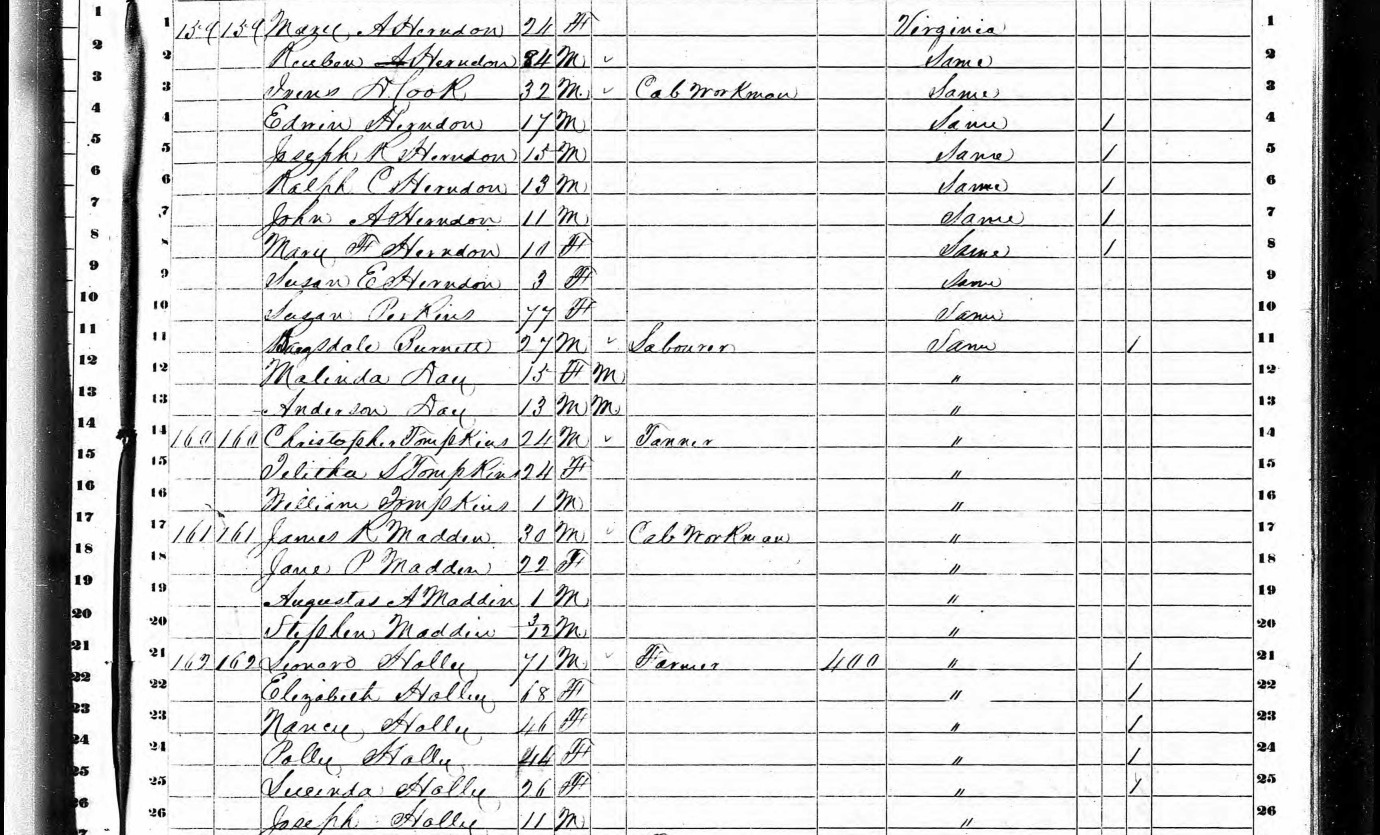 1 1 159 159 Mary A Herndon 24 F Virginia 1
2 2 Reuben A Herndon 84 M ✓ Same 2
3 3 A Cook 32 M ✓ Cab Workman Same 3
4 4 Edwin Herndon 17 M Same 1 4
5 5 Joseph R Herndon 15 M Same 1 5
6 6 Ralph C Herndon 13 M Same 1 6
7 7 John A Herndon 11 M Same 1 7
8 8 Mary F Herndon 10 F Same 1 8
9 9 Susan E Herndon 3 F Same 9
10 10 Susan Perkins 77 F Same 10
11 11 Ragsdale Burnett 27 M ✓ Labourer Same 1 11
12 12 Malinda Day 15 F M " 12
13 13 Anderson Day 13 M M " 13
14 14 160 160 Christopher Tompkins 24 M ✓ Tanner " 14
15 15 Telitha S Tompkins 24 F " 15
16 16 William Tompkins 1 M " 16
17 17 161 161 James R Madden 30 M ✓ Cab Workman " 17
18 18 Jane P Madden 22 F " 18
19 19 Augustas A Maddin 1 M " 19
20 20 Stephen Maddin 3/12 M " 20
21 21 162 162 Leonard Holly 71 M ✓ Farmer 400 " 1 21
22 22 Elizabeth Holly 68 F " 1 22
23 23 Nancy Holly 46 F " 1 23
24 24 Polly Holly 44 F " 1 24
25 25 Lucinda Holly 26 F " 1 25
26 26 Joseph Holly 11 M " 26